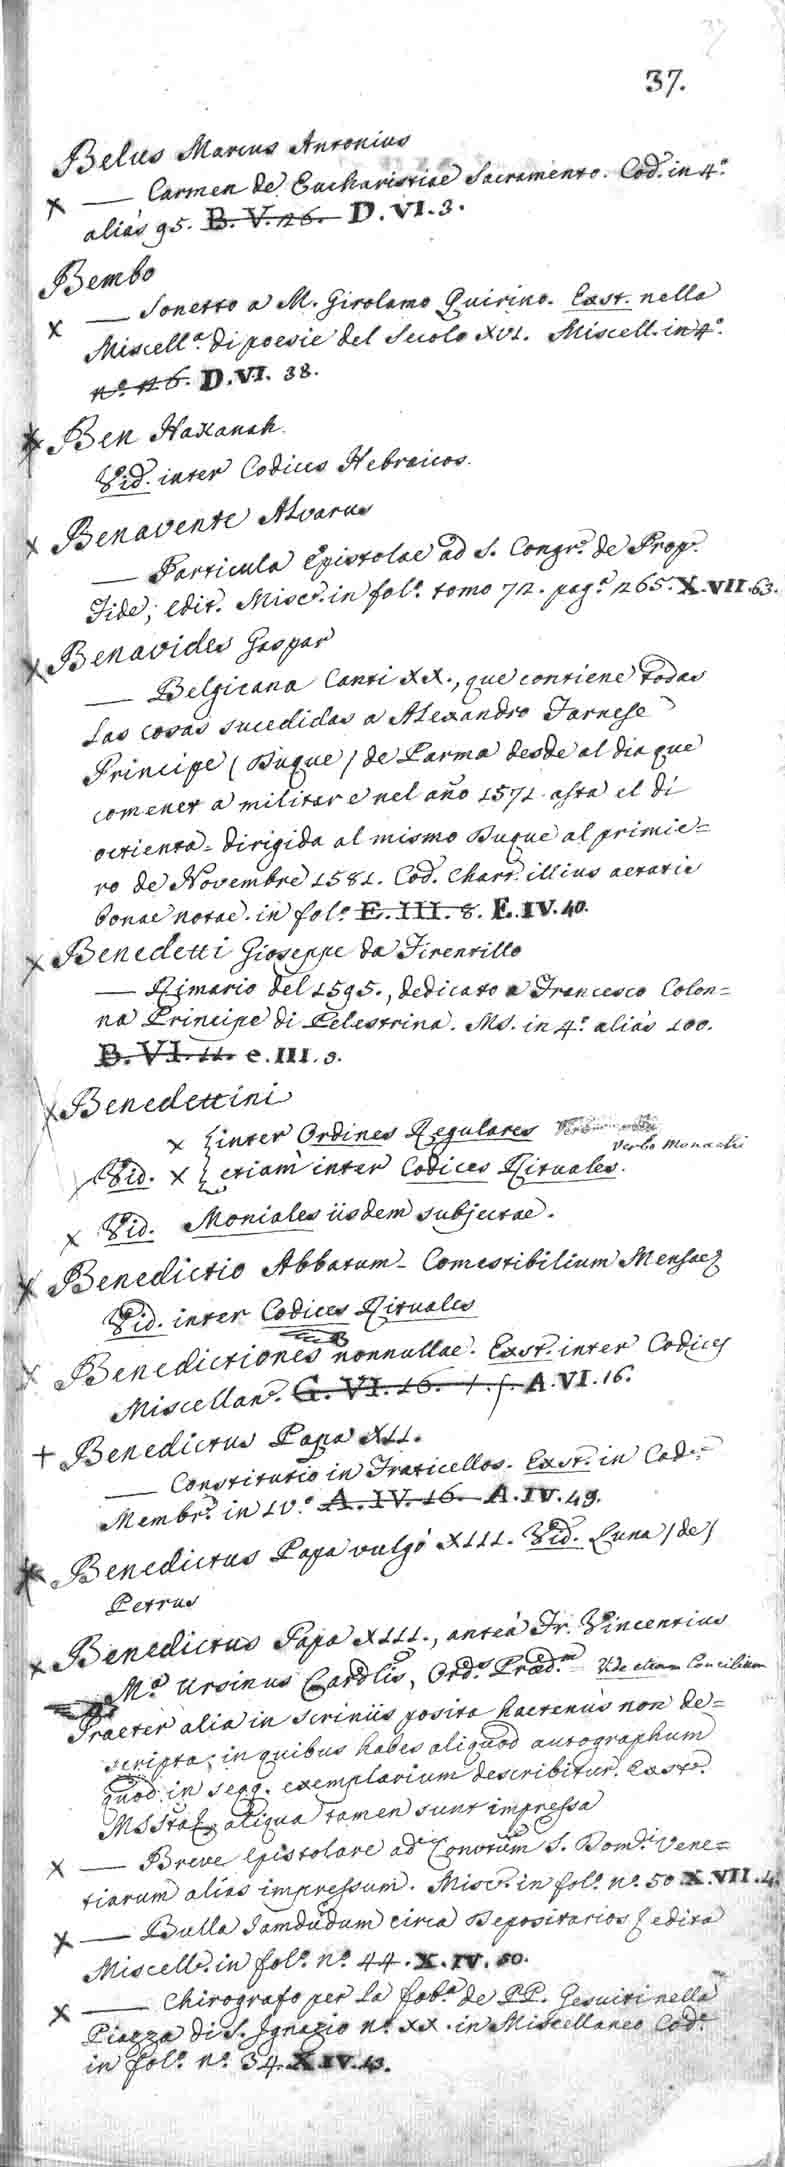 37.
Belus Marcus Antonius
x — Carmen de Eucharistiae Sacramento. Cod. in 4.º
aliàs 95. B. V. 26. D. VI. 3.
Bembo
x — Sonetto a M. Girolamo Quirino. Exst. nella
Miscell.ª di poesie del Secolo XVI. Miscell. in 4.º
n.º 126. D. VI. 38.
x Ben Haxanah.
Vid. inter Codices Hebraicos.
x Benavente Alvarus
— Particula Epistolae ad S. Congr. de Prop.
Fide; edit. Misc. in fol.º tomo 72. pag.ª 265. X. VII. 63.
x Benavides Gaspar
— Belgicana Canti XX., que contiene todas
las cosas sucedidas a Alexandro Farnese
Principe (Duque) de Parma desde al dia que
a militar e nel año 1571 asta el di
octienta = dirigida al mismo Duque al primie=
ro de Novembre 1581. Cod. Chart. illius aetatis
bonae notae. in fol.º E. III. 8. E. IV. 40.
x Benedetti Gioseppe da Firentillo
— Rimario del 1595., dedicato a Francesco Colon=
na Principe di Pelestrina. Ms. in 4.º aliàs 100.
B. VI. 11. e. III. 9.
x Benedettini
x { inter Ordines Regulares
verbo Monachi
Vid. x { etiam inter Codices Rituales.
x Vid. Moniales iisdem subjectae.
x Benedictio Abbatum - Comestibilium Mensae
Vid. inter Codices Rituales
x Benedictiones nonnullae. Exst. inter Codices
Miscellan. G. VI. 16. A. VI. 16.
+ Benedictus Papa XII.
— Constitutio in Fraticellos. Exst. in Cod.
Membr. in IV.º A. IV. 16. A. IV. 49.
x Benedictus Papa vulgò XIII. Vid. Luna (de)
Petrus
x Benedictus Papa XIII., anteà Fr. Vincentius
M.ª Ursinus Cardlis, Ord.s Praed.m Vide etiam Concilium
Praeter alia in scriniis posita hactenùs non de=
scripta; in quibus habes aliquod autographum
quod in seqq. exemplarium describitur. Exst.
aliqua tamen sunt impressa
x — Breve epistolare ad S. Dom.i Vene=
tiarum aliàs impressum. Misc. in fol.º n.º 50 X. VII. 4.
x — Bulla Jamdudum circa Depositarios edita
Miscell. in fol.º n.º 44. X. IV. 50.
x — Chirografo per la fab.ª de PP. Gesuiti nella
Piazza di S. Ignazio n.º XX. in Miscellaneo Cod.
in fol.º n.º 34. X. IV. 43.